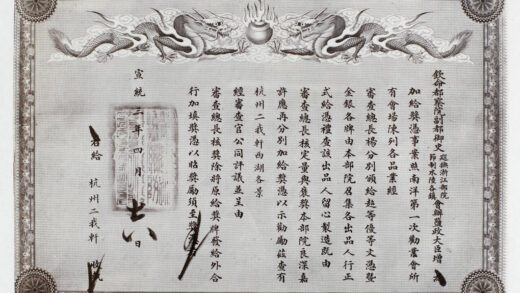 欽命都察院副都御史巡撫浙江部院節制水陸各鎮會辦鹽政大臣增
加給獎憑事案照南洋第一次勸業會所
有會場陳列各品業經
審查總長楊分別頒給超等優等文憑暨
金銀各牌由本部院召集各出品人行正
式給憑禮查該出品人留心製造既由
審查總長核定量與褒獎本部院良深嘉
許應再分別加給獎憑以示勸勵茲查有
杭州二我軒西湖各景
經審查官公同評議並呈由
審查總長核獎除將原給獎牌發給外合
行加填獎憑以臨獎勵須至獎
宣統三年四月日
右給杭州二我軒